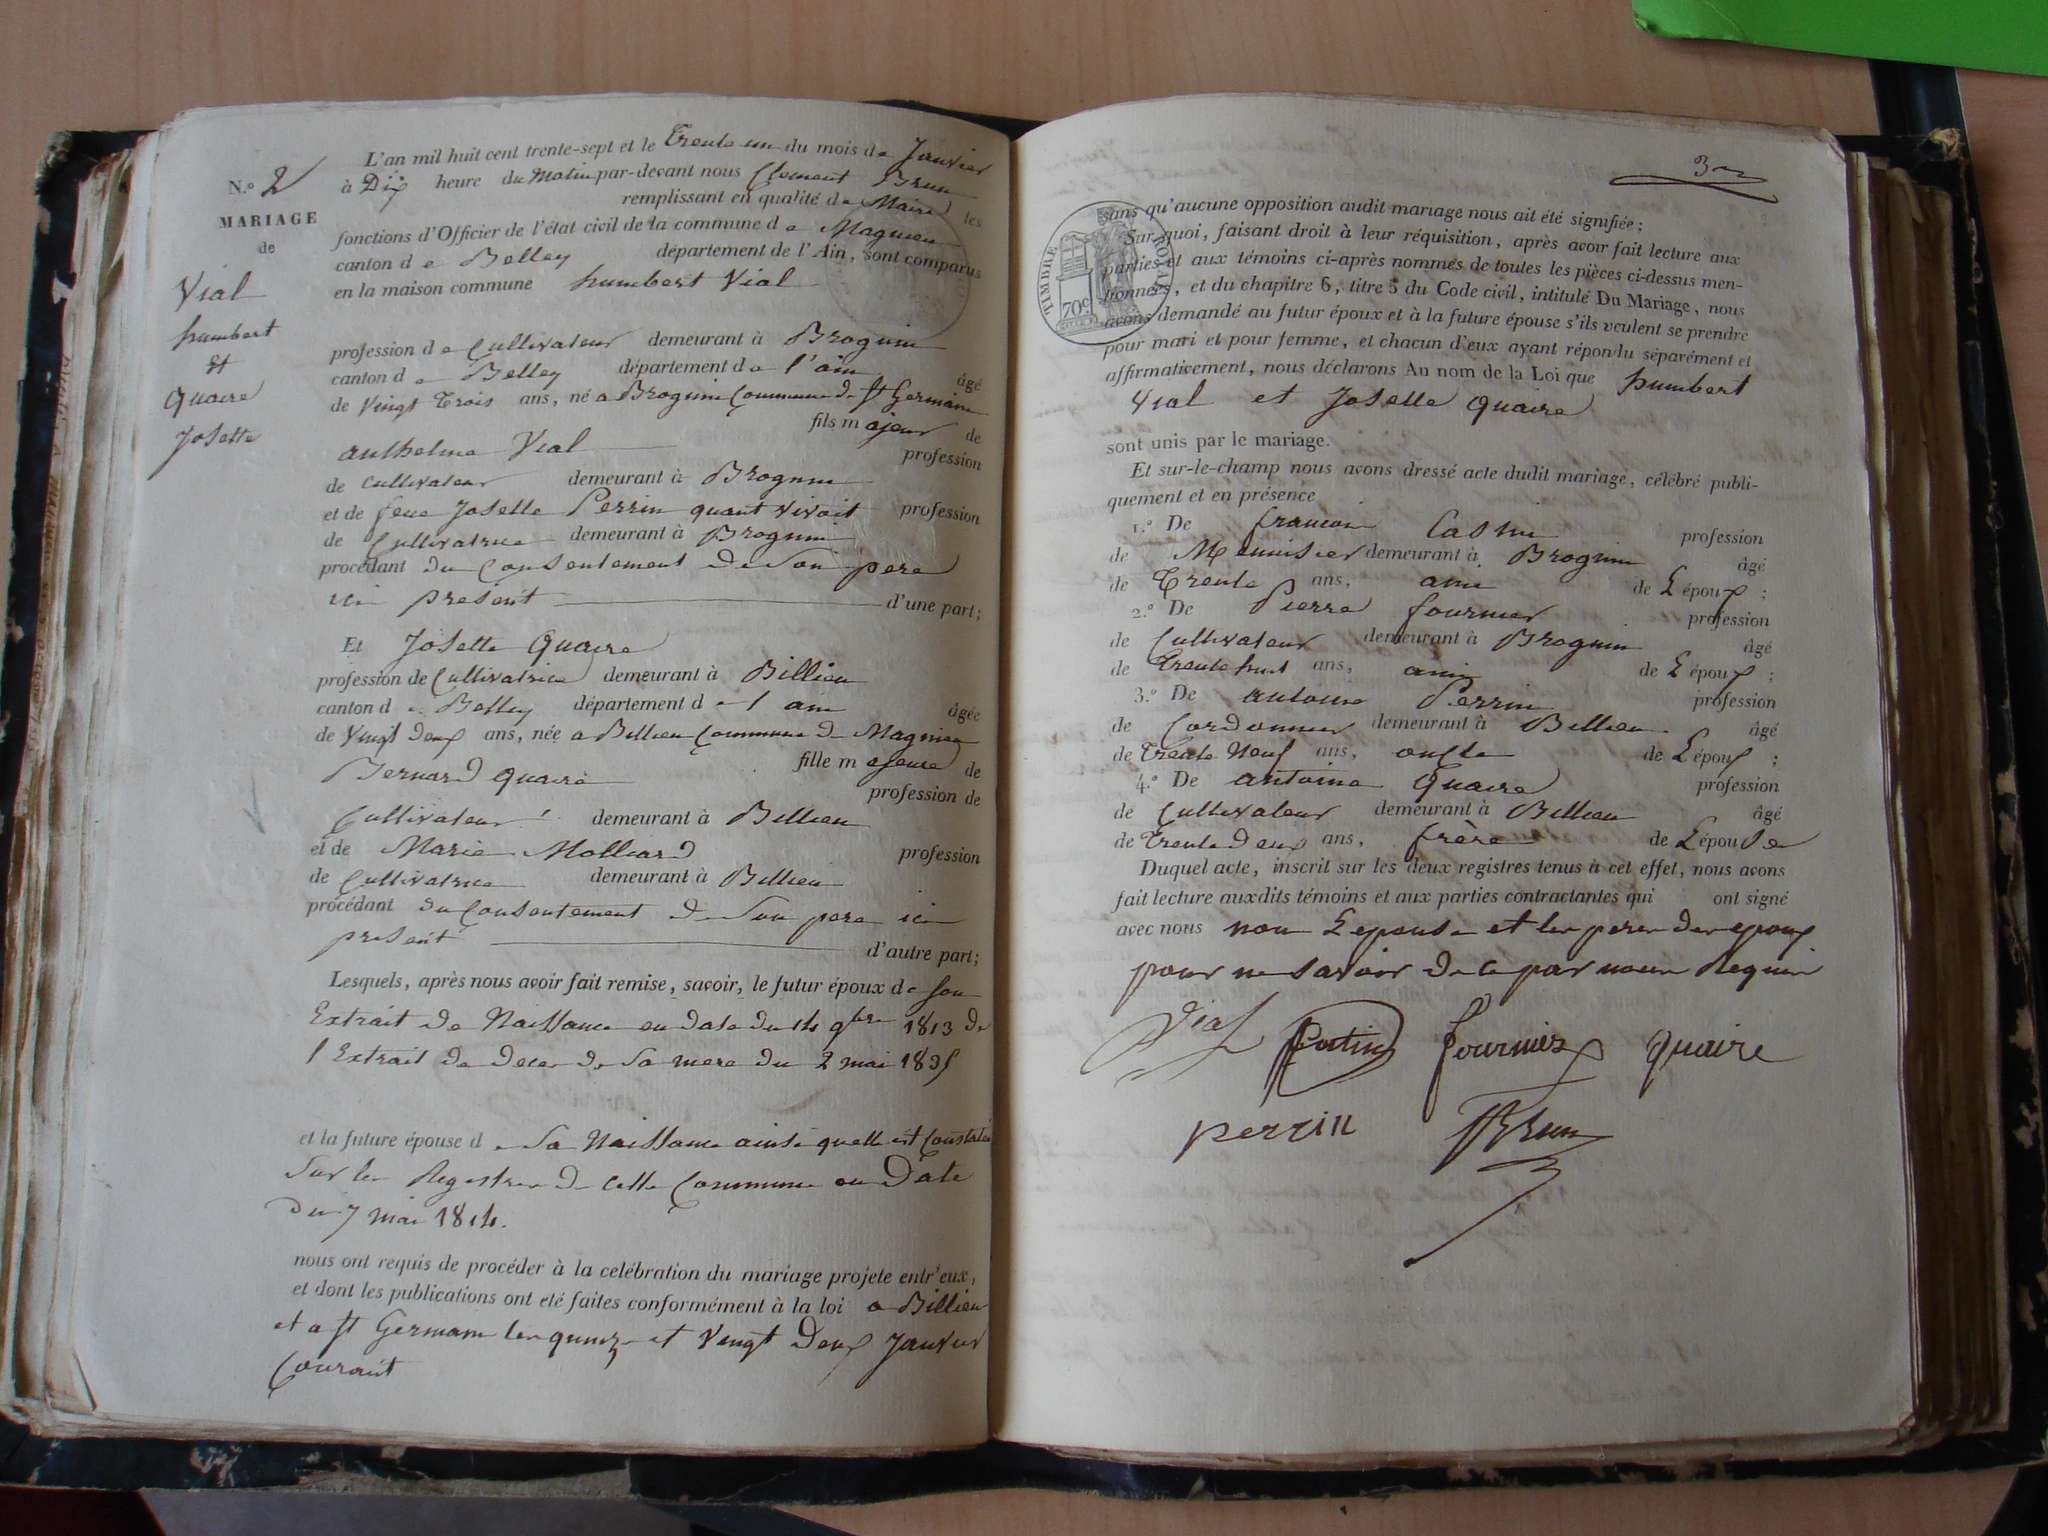 N.º 2
MARIAGE
de
Vial
humbert
et
Quaire
Josette
L'an mil huit cent trente-sept et le Trente un du mois de Janvier
à Dix heure du Matin par-devant nous Clement Brun
remplissant en qualité de Maire les
fonctions d'Officier de l'état civil de la commune de Magnieu
canton de Belley département de l'Ain, sont comparus
en la maison commune humbert Vial
profession de Cultivateur demeurant à Brognin
canton de Belley département de l'ain âgé
de Vingt Trois ans, né a Brognin Commune de St Germain
fils majeur de
anthelme Vial profession
de cultivateur demeurant à Brognin
et de feue Josette Perrin quant vivoit profession
de Cultivatrice demeurant à Brognin
procédant du Consentement de Son pere
ici present d'une part;
Et Josette Quaire
profession de Cultivatrice demeurant à Billieu
canton de Belley département de l ain âgée
de Vingt deux ans, née a Billieu Commune de Magnieu
fille majeure de
Bernard Quaire profession de
Cultivateur demeurant à Billieu
et de Marie Molliard profession
de Cultivatrice demeurant à Billieu
procédant du Consentement de Son pere ici
present d'autre part;
Lesquels, après nous avoir fait remise, savoir, le futur époux de Son
Extrait de Naissance en date du 14 9bre 1813 de
l Extrait de deces de Sa mere du 2 mai 1835
et la future épouse de Sa Naissance ainsi quelle est Constatée
Sur les Registres de cette Commune en Date
Du 7 mai 1814.
nous ont requis de procéder à la celébration du mariage projete entr'eux,
et dont les publications ont eté faites conformément à la loi a Billieu
et a St Germain les quinze et Vingt Deux Janvier
Courant
3
sans qu'aucune opposition audit mariage nous ait été signifiée;
Sur quoi, faisant droit à leur réquisition, après avoir fait lecture aux
parties et aux témoins ci-après nommés de toutes les pièces ci-dessus men-
tionnées, et du chapitre 6, titre 5 du Code civil, intitulé Du Mariage, nous
avons demandé au futur époux et à la future épouse s'ils veulent se prendre
pour mari et pour femme, et chacun d'eux ayant répondu séparément et
affirmativement, nous déclarons Au nom de la Loi que humbert
Vial et Josette Quaire
sont unis par le mariage.
Et sur-le-champ nous avons dressé acte dudit mariage, célébré publi-
quement et en présence
1.º De francois profession
de Meunisier demeurant à Brognin âgé
de Trente ans, ami de Lépoux;
2.º De Pierre fournier profession
de Cultivateur demeurant à Brognin âgé
de Trente huit ans, ami de Lépoux;
3.º De antoine Perrin profession
de Cordonnier demeurant à Billieu âgé
de Trente Neuf ans, oncle de Lépoux;
4.º De antoine Quaire profession
de Cultivateur demeurant à Billieu âgé
de Trente deux ans, frère de Lépouse
Duquel acte, inscrit sur les deux registres tenus à cet effet, nous avons
fait lecture auxdits témoins et aux parties contractantes qui ont signé
avec nous non Lepouse et les peres des epoux
pour ne savoir de ce par nous Requis
Vial fournier quaire
perrin Brun
TIMBRE ROYAL
70c